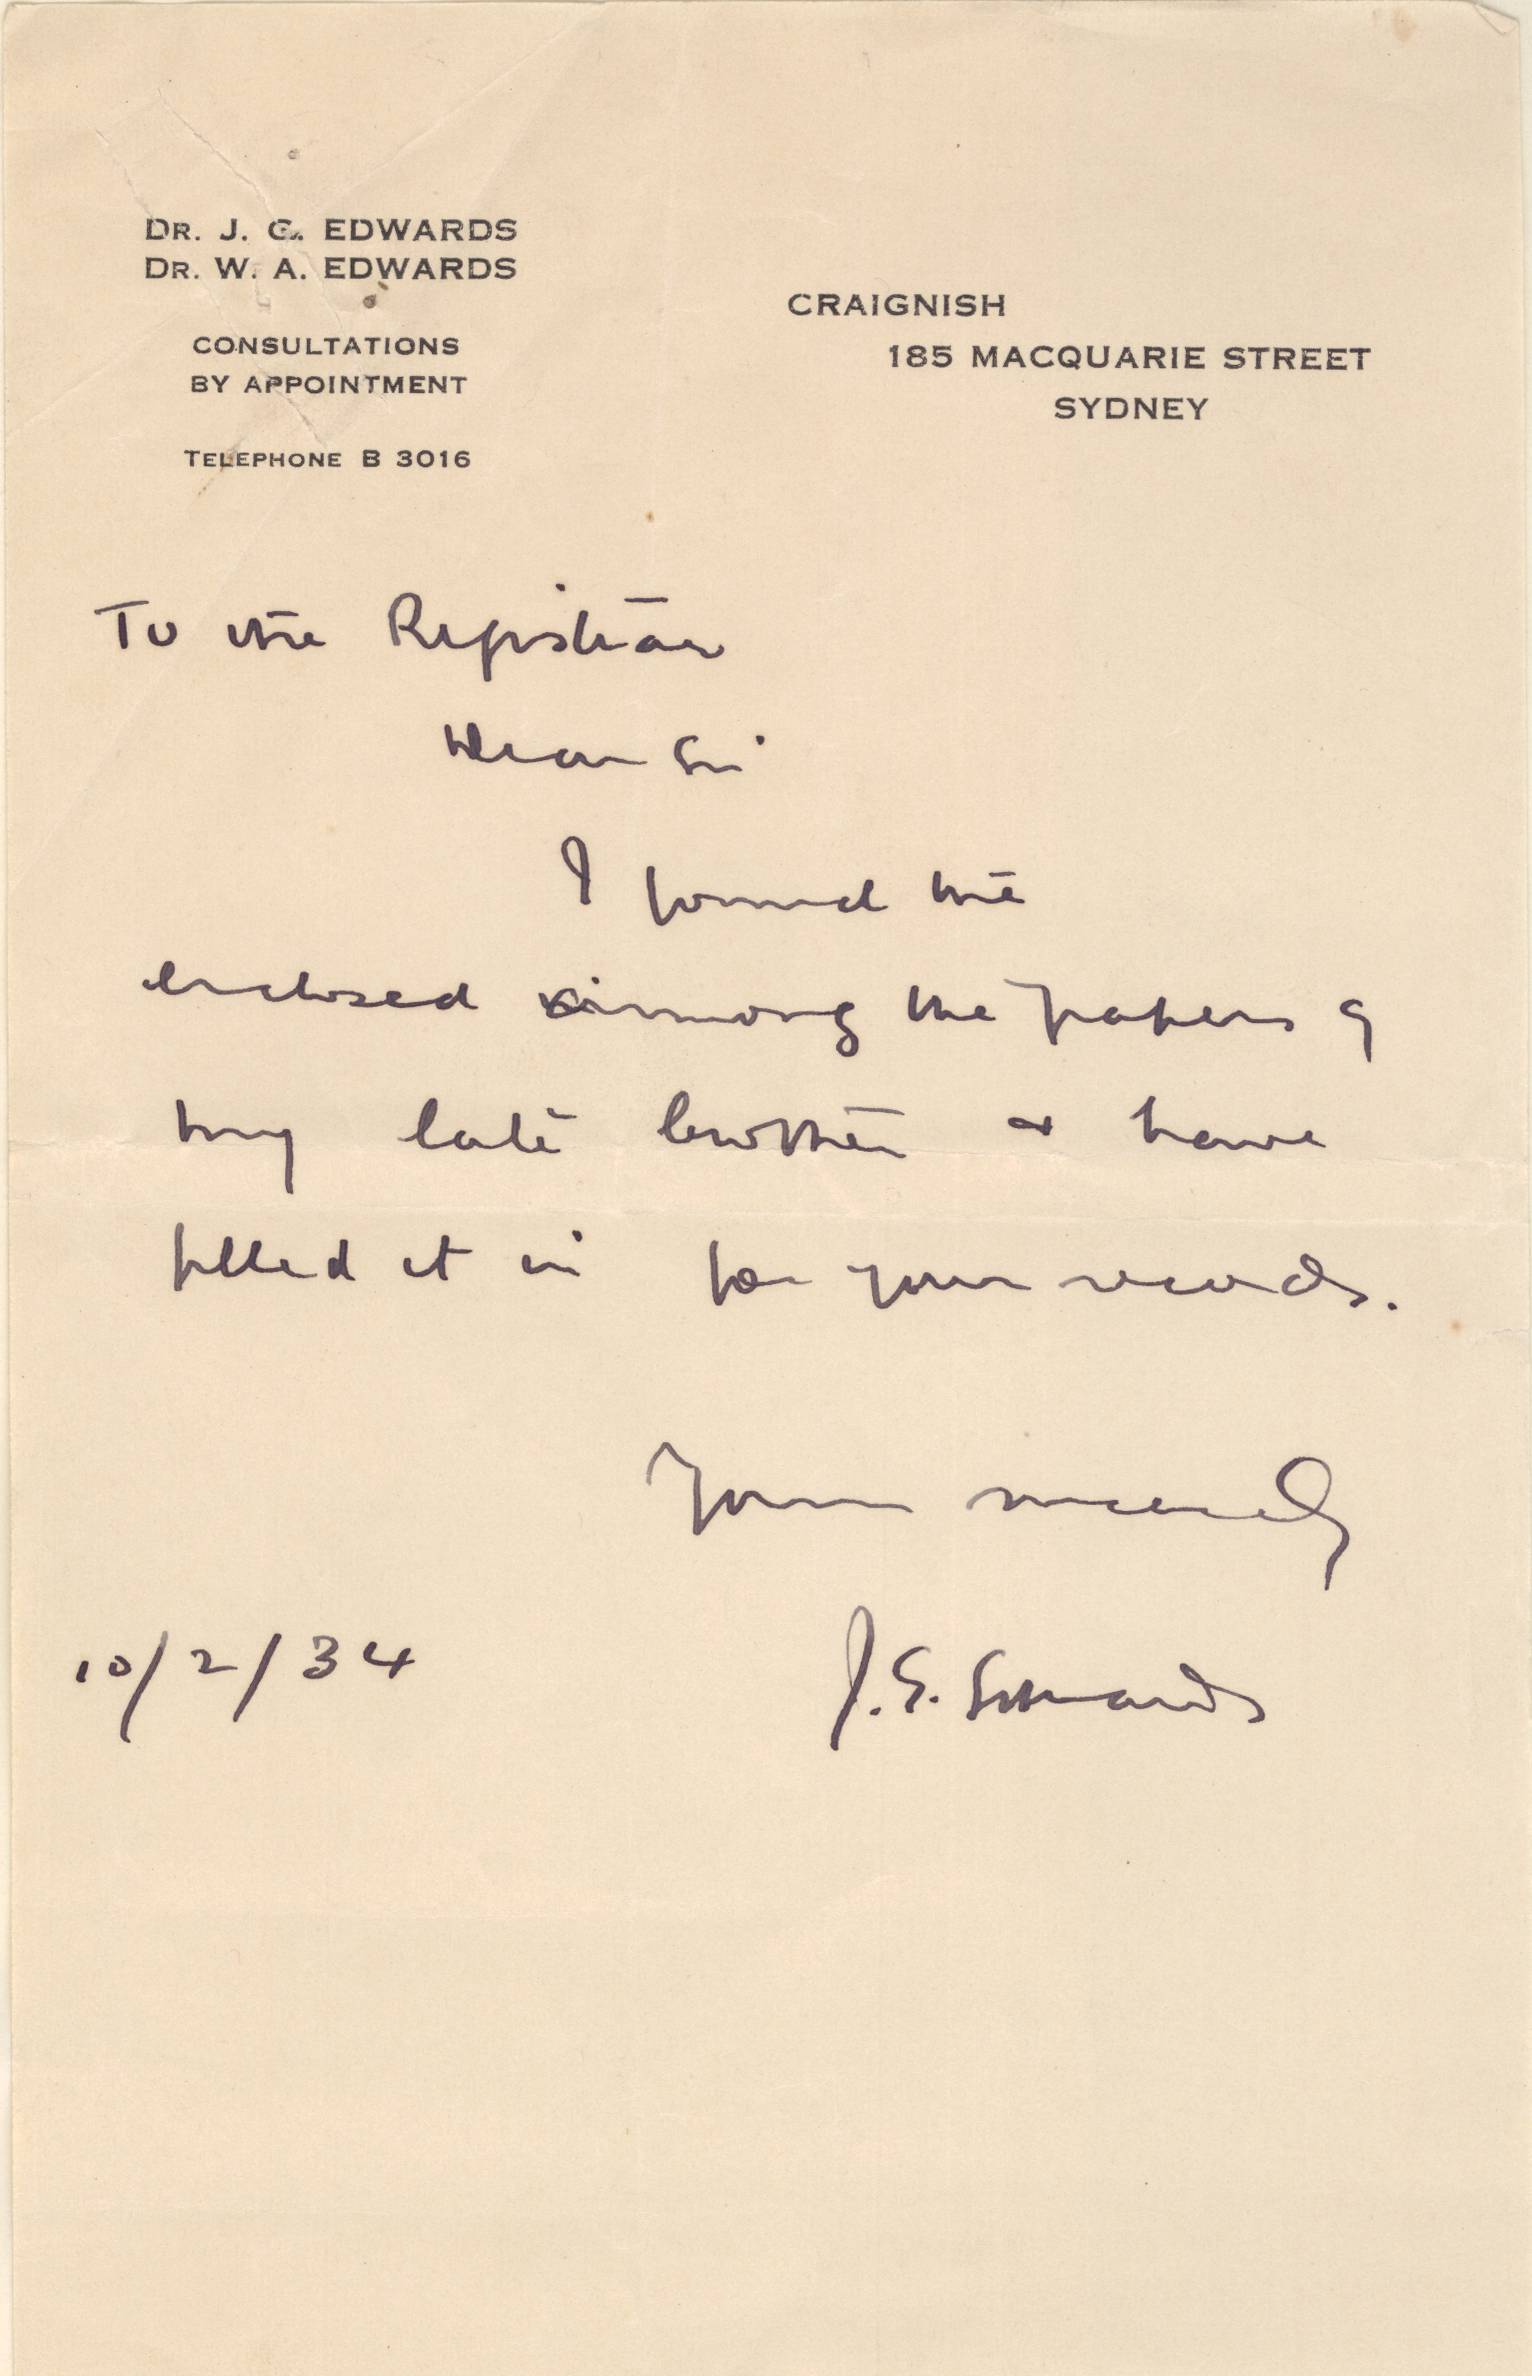 DR. J. G. EDWARDS
DR. W. A. EDWARDS
CONSULTATIONS
BY APPOINTMENT
TELEPHONE B 3016
CRAIGNISH
185 MACQUARIE STREET
SYDNEY
To the Registrar
Dear Sir
I found the
enclosed among the papers of
my late brother & have
filled it in for your records.
Yours sincerely
J. G. Edwards
10/2/34